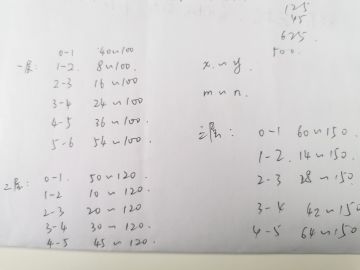 125
45
625
500.
一层: 0-1 40~100
1-2. 8~100.
2-3 16~100
3-4 24~100
4-5 36~100
5-6 54~100.
x~y.
m~n.
二层: 0-1. 50~120.
1-2 10~120.
2-3 20~120
3-4 30~120.
4-5 45~120.
三层: 0-1 60~150.
1-2. 14~150.
2-3 28~150
3-4 42~150
4-5 64~150